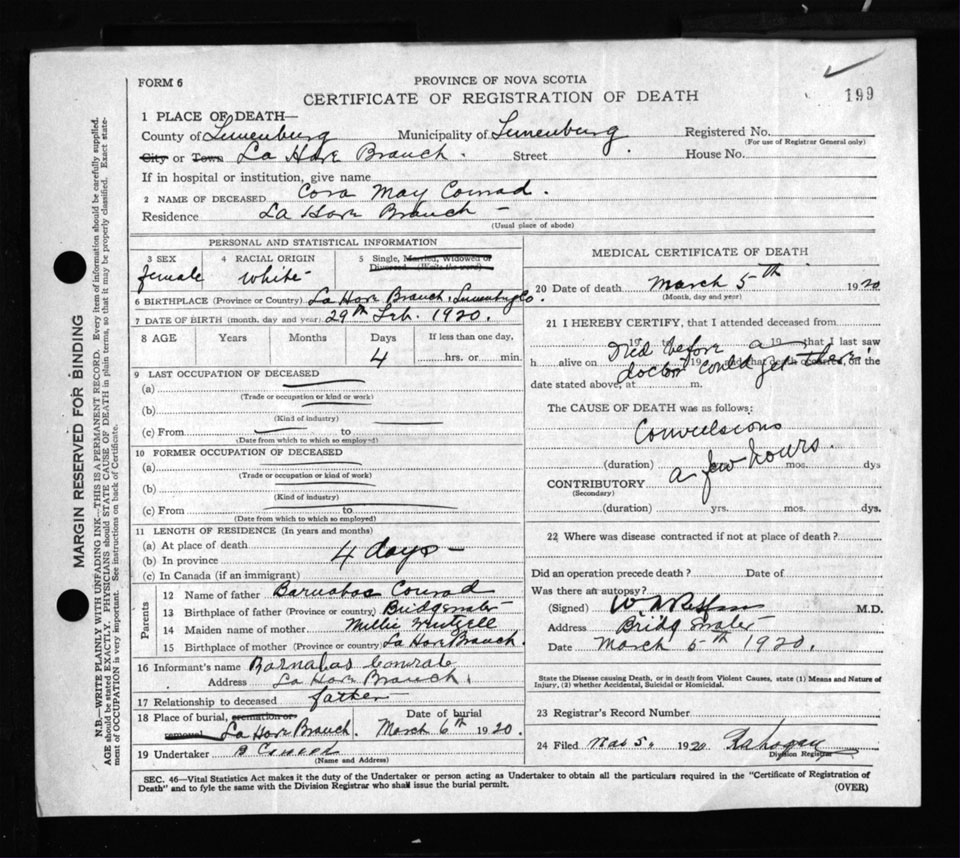 FORM 6
PROVINCE OF NOVA SCOTIA
CERTIFICATE OF REGISTRATION OF DEATH
199
1 PLACE OF DEATH—
County of Lunenburg Municipality of Lunenburg Registered No.
(For use of Registrar General only)
City or Town La Have Branch. Street House No.
If in hospital or institution, give name
2 NAME OF DECEASED Cora May Conrad.
Residence La Have Branch —
(Usual place of abode)
PERSONAL AND STATISTICAL INFORMATION
3 SEX female
4 RACIAL ORIGIN White
5 Single, Married, Widowed or Divorced (Write the word)
6 BIRTHPLACE (Province or Country) La Have Branch, Lunenburg Co.
7 DATE OF BIRTH (month, day and year) 29th Feb. 1920.
8 AGE Years Months Days If less than one day,
4 hrs. or min.
9 LAST OCCUPATION OF DECEASED
(a)
(Trade or occupation or kind or work)
(b)
(Kind of industry)
(c) From to
(Date from which to which so employed)
10 FORMER OCCUPATION OF DECEASED
(a)
(Trade or occupation or kind or work)
(b)
(Kind of industry)
(c) From to
(Date from which to which so employed)
11 LENGTH OF RESIDENCE (In years and months)
(a) At place of death
(b) In province 4 days —
(c) In Canada (if an immigrant)
Parents
12 Name of father Barnabas Conrad
13 Birthplace of father (Province or country) Bridgewater
14 Maiden name of mother Millie
15 Birthplace of mother (Province or country) La Have Branch.
16 Informant's name Barnabas Conrad
Address La Have Branch.
17 Relationship to deceased father
18 Place of burial, cremation or removal La Have Branch. Date of burial March 6th 1920.
19 Undertaker B
(Name and Address)
MEDICAL CERTIFICATE OF DEATH
20 Date of death March 5th 1920
(Month, day and year)
21 I HEREBY CERTIFY, that I attended deceased from
19 to 19 that I last saw
h alive on 19 and that death occurred, on the
Died before a
doctor could get there.
date stated above, at m.
The CAUSE OF DEATH was as follows:
Convulsions
(duration) a few hours. mos. dys
CONTRIBUTORY
(Secondary)
(duration) yrs. mos. dys.
22 Where was disease contracted if not at place of death?
Did an operation precede death? Date of
Was there an autopsy?
(Signed) M.D.
Address Bridgewater
Date March 5th 1920.
State the Disease causing Death, or in death from Violent Causes, state (1) Means and Nature of
Injury, (2) whether Accidental, Suicidal or Homicidal.
23 Registrar's Record Number
24 Filed Mar 5. 1920
Division Registrar
SEC. 46—Vital Statistics Act makes it the duty of the Undertaker or person acting as Undertaker to obtain all the particulars required in the "Certificate of Registration of
Death" and to fyle the same with the Division Registrar who shall issue the burial permit.
(OVER)
MARGIN RESERVED FOR BINDING
N.B.—WRITE PLAINLY WITH UNFADING INK—THIS IS A PERMANENT RECORD. Every item of information should be carefully supplied.
AGE should be stated EXACTLY. PHYSICIANS should STATE CAUSE OF DEATH in plain terms, so that it may be properly classified. Exact state-
ment of OCCUPATION is very important. See instructions on back of Certificate.